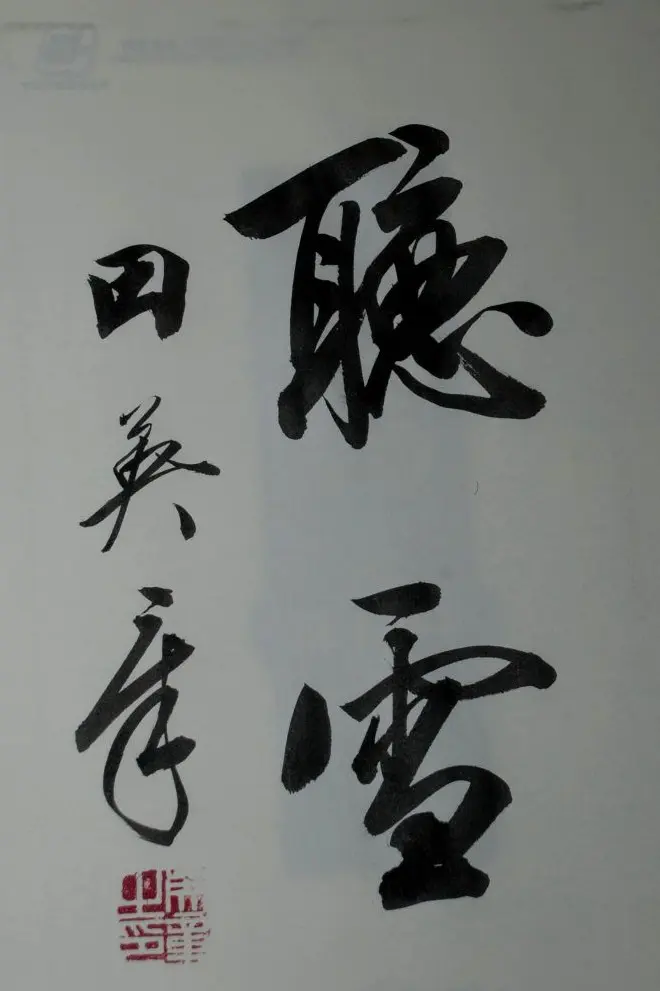 聽雪
田英章